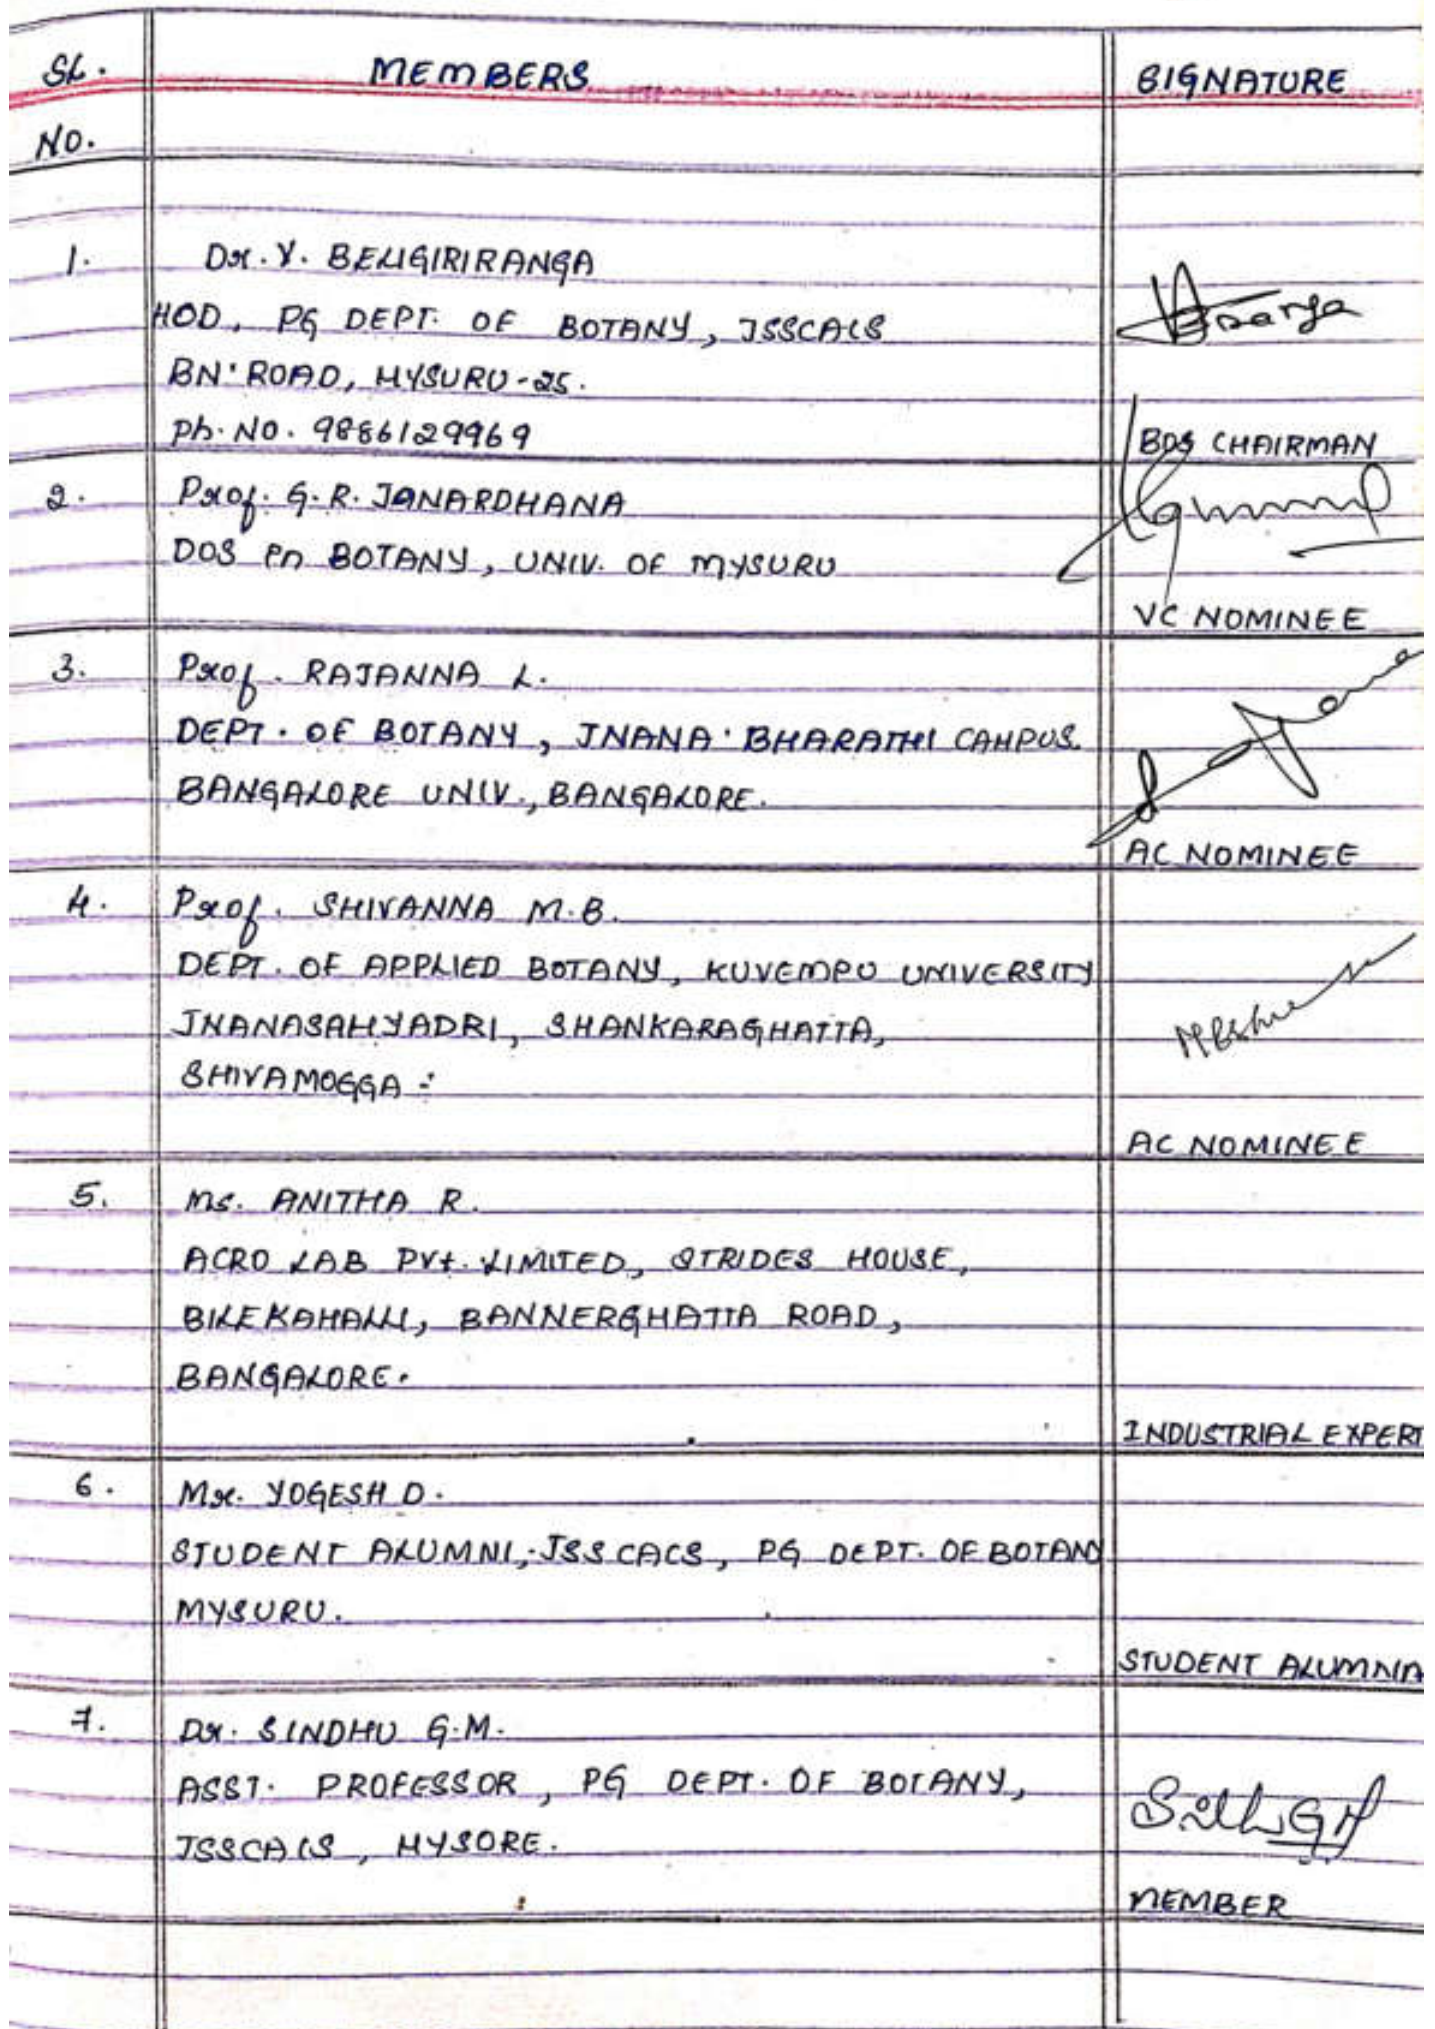 SL. MEMBERS SIGNATURE
NO.
1. Dr. Y. BELIGIRIRANGA
HOD, PG DEPT. OF BOTANY, JSSCACS
BN' ROAD, MYSURU-25.
Ph. NO. 9886129969
BOS CHAIRMAN
2. Prof. G. R. JANARDHANA
DOS in BOTANY, UNIV. OF MYSURU
VC NOMINEE
3. Prof. RAJANNA L.
DEPT. OF BOTANY, JNANA BHARATHI CAMPUS.
BANGALORE UNIV., BANGALORE.
AC NOMINEE
4. Prof. SHIVANNA M.B.
DEPT. OF APPLIED BOTANY, KUVEMPU UNIVERSITY
JNANASAHYADRI, SHANKARAGHATTA,
SHIVAMOGGA
AC NOMINEE
5. Ms. ANITHA R.
ACRO LAB PVt. LIMITED, STRIDES HOUSE,
BILEKAHALLI, BANNERGHATTA ROAD,
BANGALORE.
INDUSTRIAL EXPERT
6. Mr. YOGESH D.
STUDENT ALUMNI, JSS CACS, PG DEPT. OF BOTAN
MYSURU.
STUDENT ALUMNIA
7. Dr. SINDHU G.M.
ASST. PROFESSOR, PG DEPT. OF BOTANY,
JSSCACS, MYSORE.
MEMBER